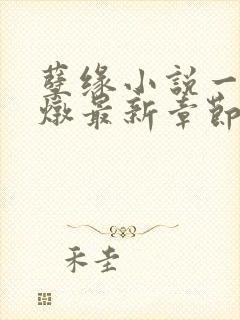 孽缘小説一
燉最新章節
禾圭